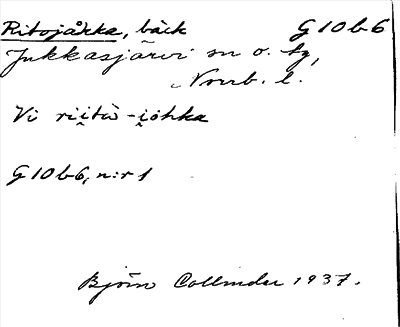 Ritojåkka, bäck G10b6
Jukkasjärvi sn o. tg,
Norrb. l.
Vi riitu̇-i̯ohka
G10b6, n:r 1
Björn Collinder 1937.